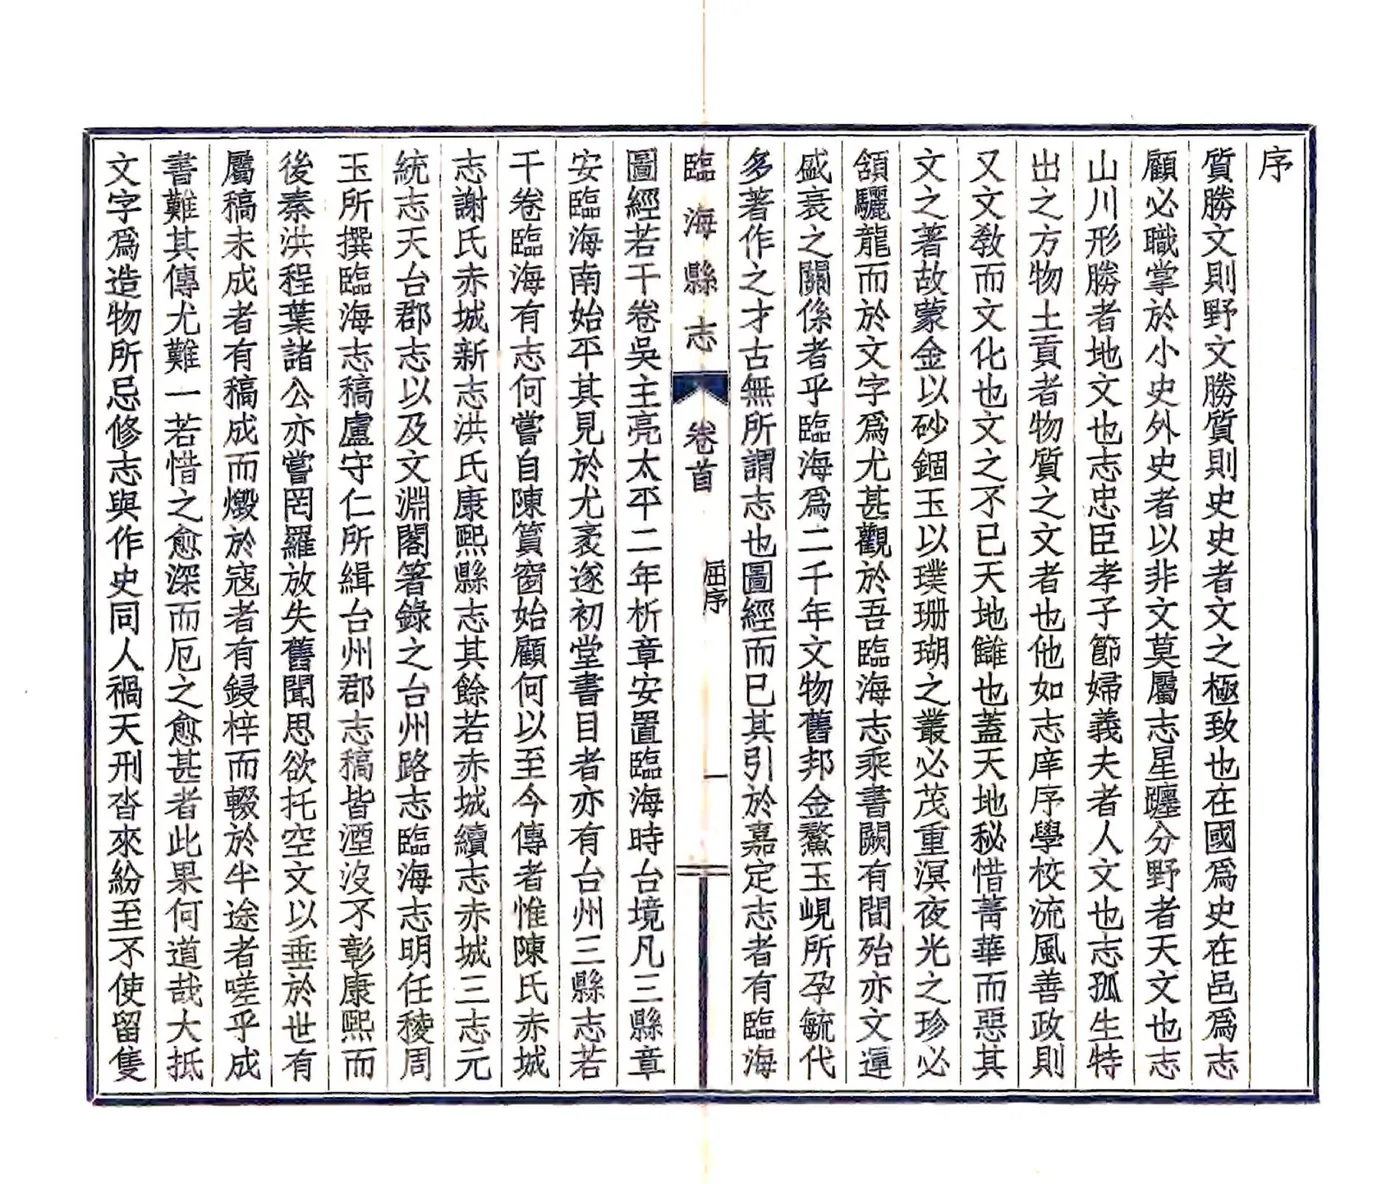 序
質勝文則野文勝質則史史者文之極致也在國爲史在邑爲志
顧必職掌於小史外史者以非文莫屬志星躔分野者天文也志
山川形勝者地文也志忠臣孝子節婦義夫者人文也志孤生特
出之方物土貢者物質之文者也他如志庠序學校流風善政則
又文教而文化也文之不已天地讎也蓋天地秘惜菁華而惡其
文之著故蒙金以砂錮玉以璞珊瑚之叢必茂重溟夜光之珍必
頷驪龍而於文字爲尤甚觀於吾臨海志乘書闕有間殆亦文運
盛衰之關係者乎臨海爲二千年文物舊邦金鰲玉峴所孕毓代
多著作之才古無所謂志也圖經而已其引於嘉定志者有臨海
臨海縣志 卷首 屈序 一
圖經若干卷吳主亮太平二年析章安置臨海時台境凡三縣章
安臨海南始平其見於尤袤遂初堂書目者亦有台州三縣志若
干卷臨海有志何嘗自陳篔窗始顧何以至今傳者惟陳氏赤城
志謝氏赤城新志洪氏康熙縣志其餘若赤城續志赤城三志元
統志天台郡志以及文淵閣箸錄之台州路志臨海志明任稜周
玉所撰臨海志稿盧守仁所緝台州郡志稿皆湮沒不彰康熙而
後秦洪程葉諸公亦嘗罔羅放失舊聞思欲托空文以垂於世有
屬稿未成者有稿成而燬於寇者有鋟梓而輟於半途者嗟乎成
書難其傳尤難一若惜之愈深而厄之愈甚者此果何道哉大抵
文字爲造物所忌修志與作史同人禍天刑沓來紛至不使留隻